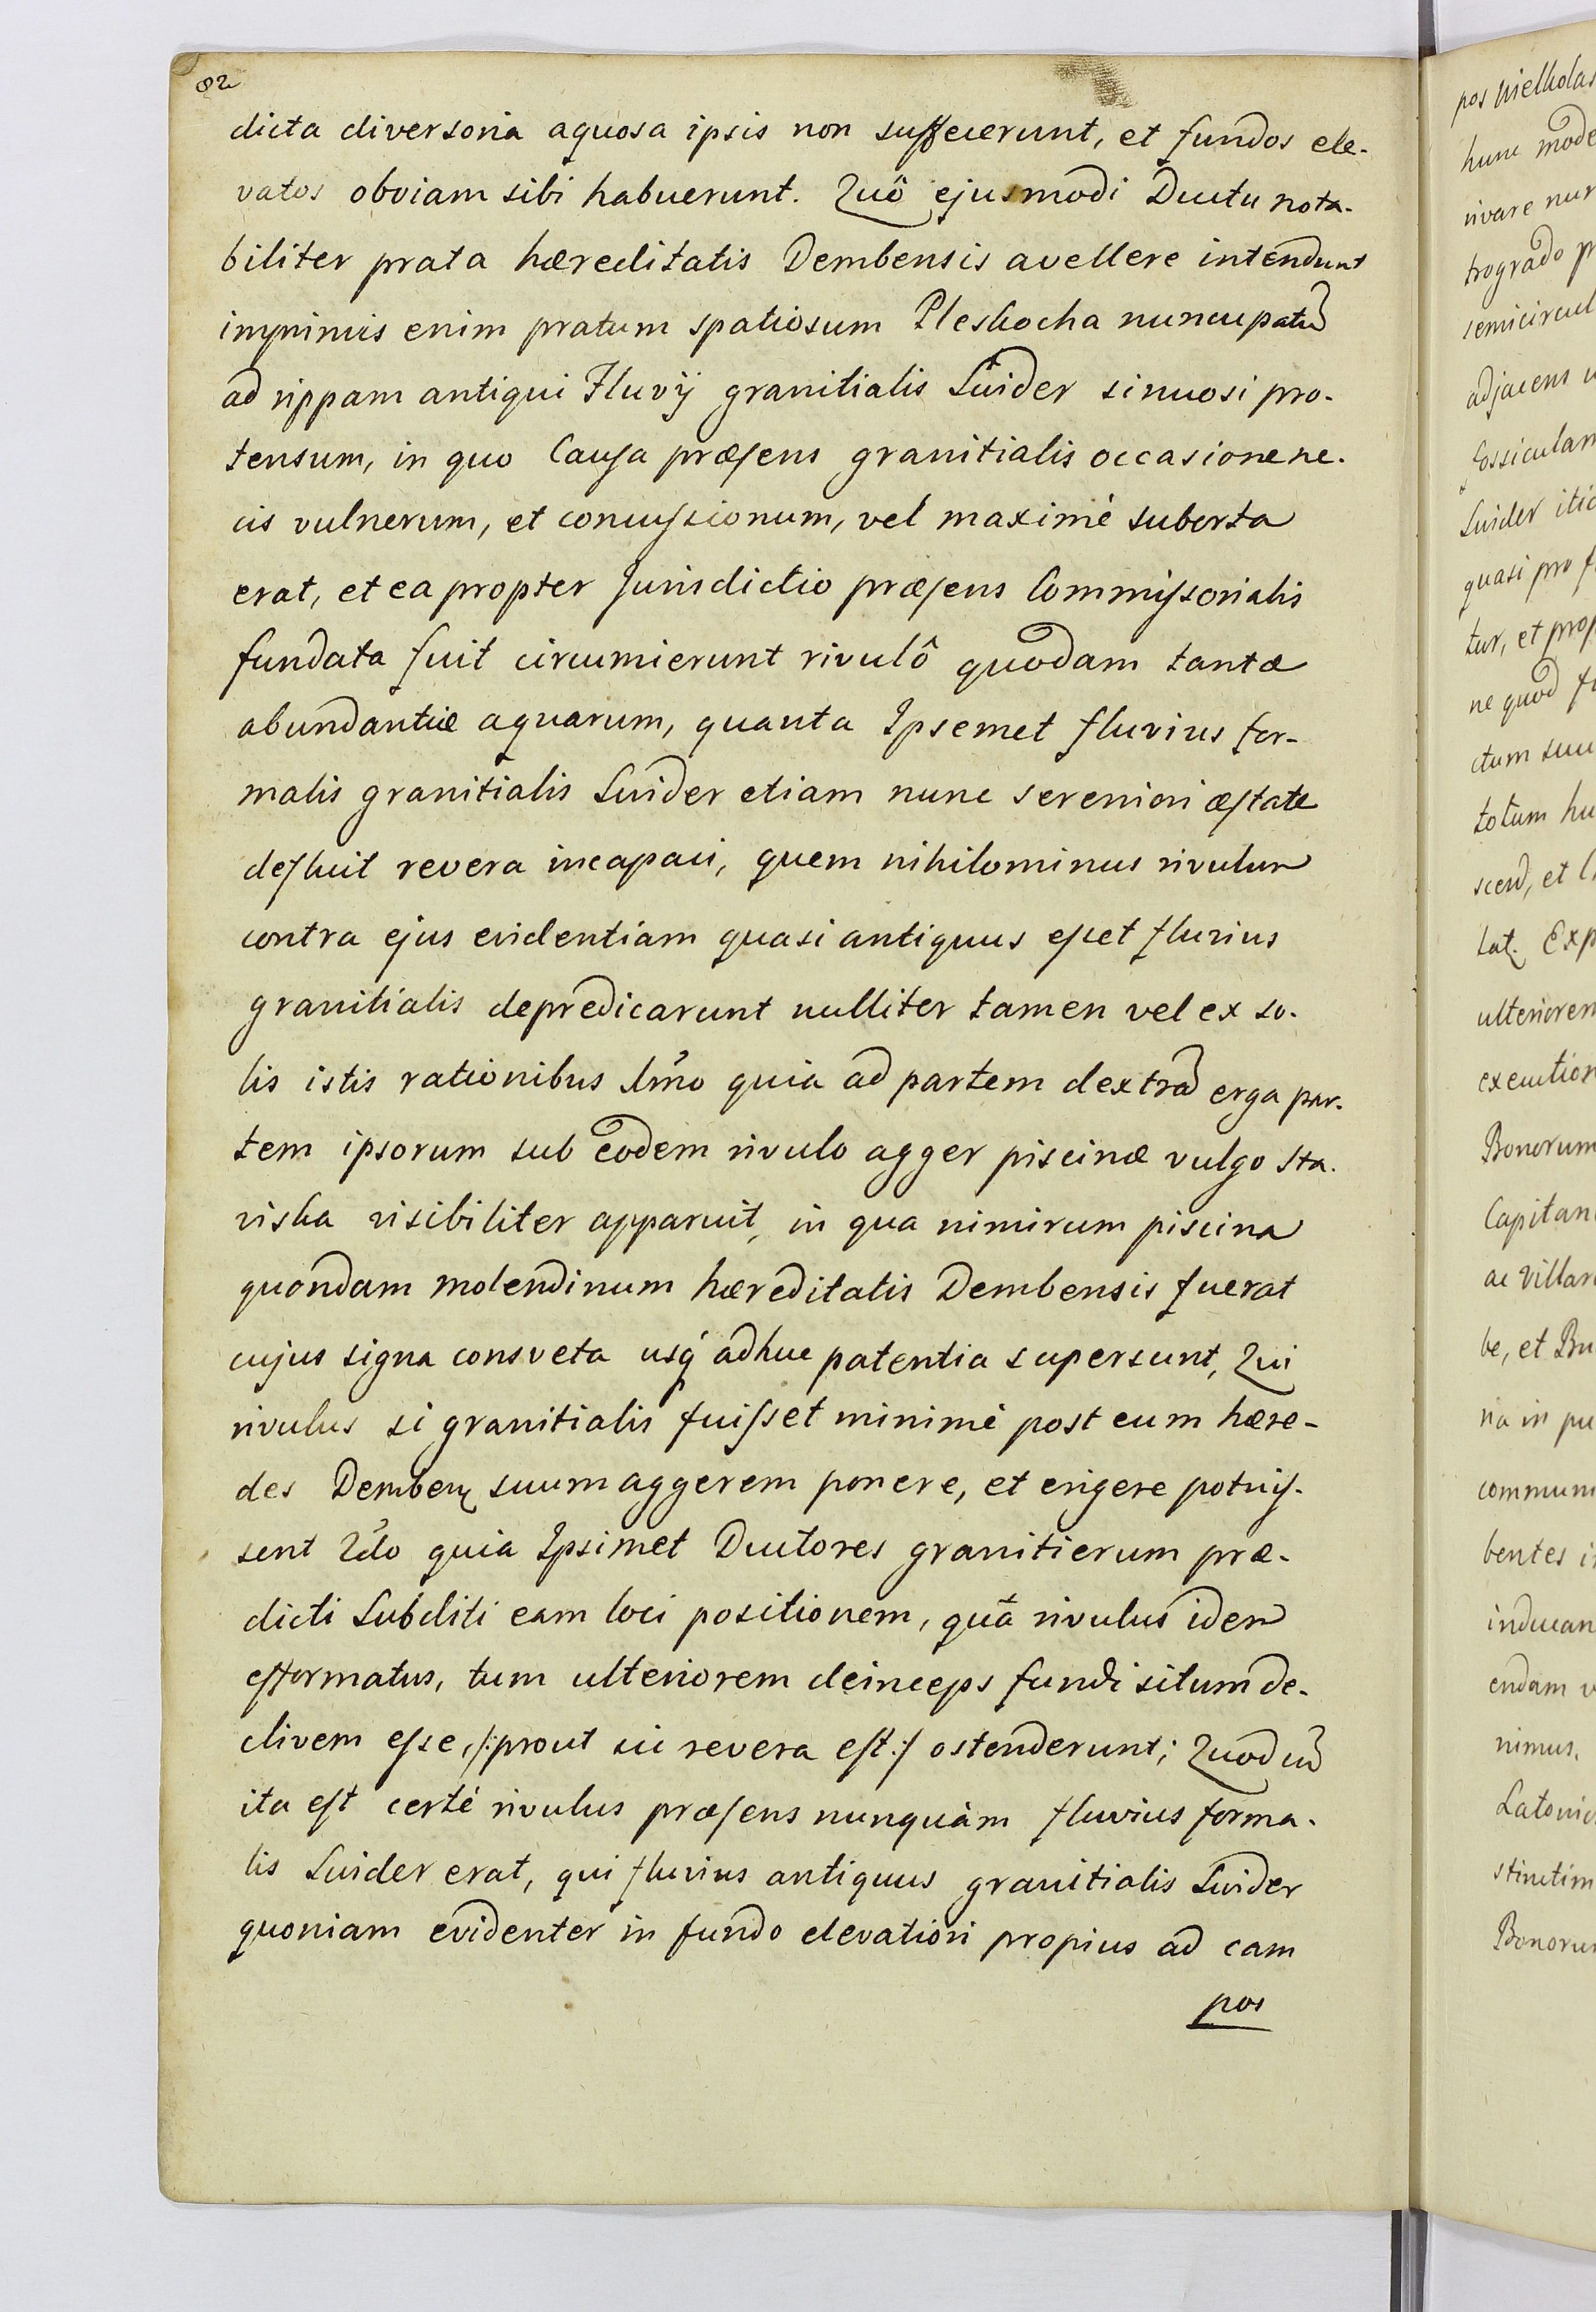 82
dicta diversoria aquosa ipsis non suffecerunt, et fundos ele-
vatos obviam sibi habuerunt. Quô ejusmodi Ductu nota-
biliter prata hæreditatis Dembensis avellere intendunt
imprimis enim pratum spatiosum Pleskocha nuncupatũ
ad rippam antiqui Fluvij granitialis Suider sinuosi pro-
tensum, in quo Causa præsens granitialis occasione ne-
cis vulnerum, et concussionum, vel maximè suborta
erat, et ea propter Jurisdictio præsens Commissorialis
fundata fuit circumierunt rivulô quodam tantæ
abundantiæ aquarum, quanta Ipsemet fluvius for-
malis granitialis Suider etiam nunc sereniori æstate
defluit revera incapaci, quem nihilominus rivulum
contra ejus evidentiam quasi antiquus esset fluvius
granitialis depredicarunt nulliter tamen vel ex so-
lis istis rationibus 1mo quia ad partem dextrã erga par-
tem ipsorum sub eodem rivulo agger piscinæ vulgo Sta-
viska visibiliter apparuit, in qua nimirum piscina
quondam molendinum hæreditatis Dembensis fuerat
cujus signa consveta usq́ adhuc patentia supersunt, Qui
rivulus si granitialis fuisset minimè post eum hære-
des Demben suum aggerem ponere, et erigere potuis-
sent 2do quia Ipsimet Ductores granitierum præ-
dicti Subditi eam loci positionem, quâ rivulus idem
efformatus, tum ulteriorem deinceps fundi situm de-
clivem esse, /:prout sic revera est:/ ostenderunt; Quod cũ
ita est certè rivulus præsens nunquàm fluvius forma-
lis Suider erat, qui fluvius antiquus granitialis Suider
quoniam evidenter in fundo elevatiori propius ad cam
pos
pos
hunc mode
trogrado
semicircul
adjacens
fossiculam
Suider
quasi pro
tur, et prop
ne quod
ctum suu
totum hu
scend, et
tat. Exp
ulteriorem
execution
Bonorum
Capitan
ac Villar
be, et Bu
ria in pu
communi
bentes i
inducan
endam
nimus.
Bonorum